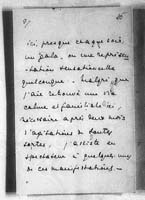 ici, presque chaque soir,
un gala, ou une représen-
tation sensationnelle
quelconque. Malgré que
j'aie retrouvé une vie
calme et familiale ici,
nécessaire après deux mois
d'agitations de toutes
sortes, j'assiste en
spectateur à quelques unes
de ces manifestations —